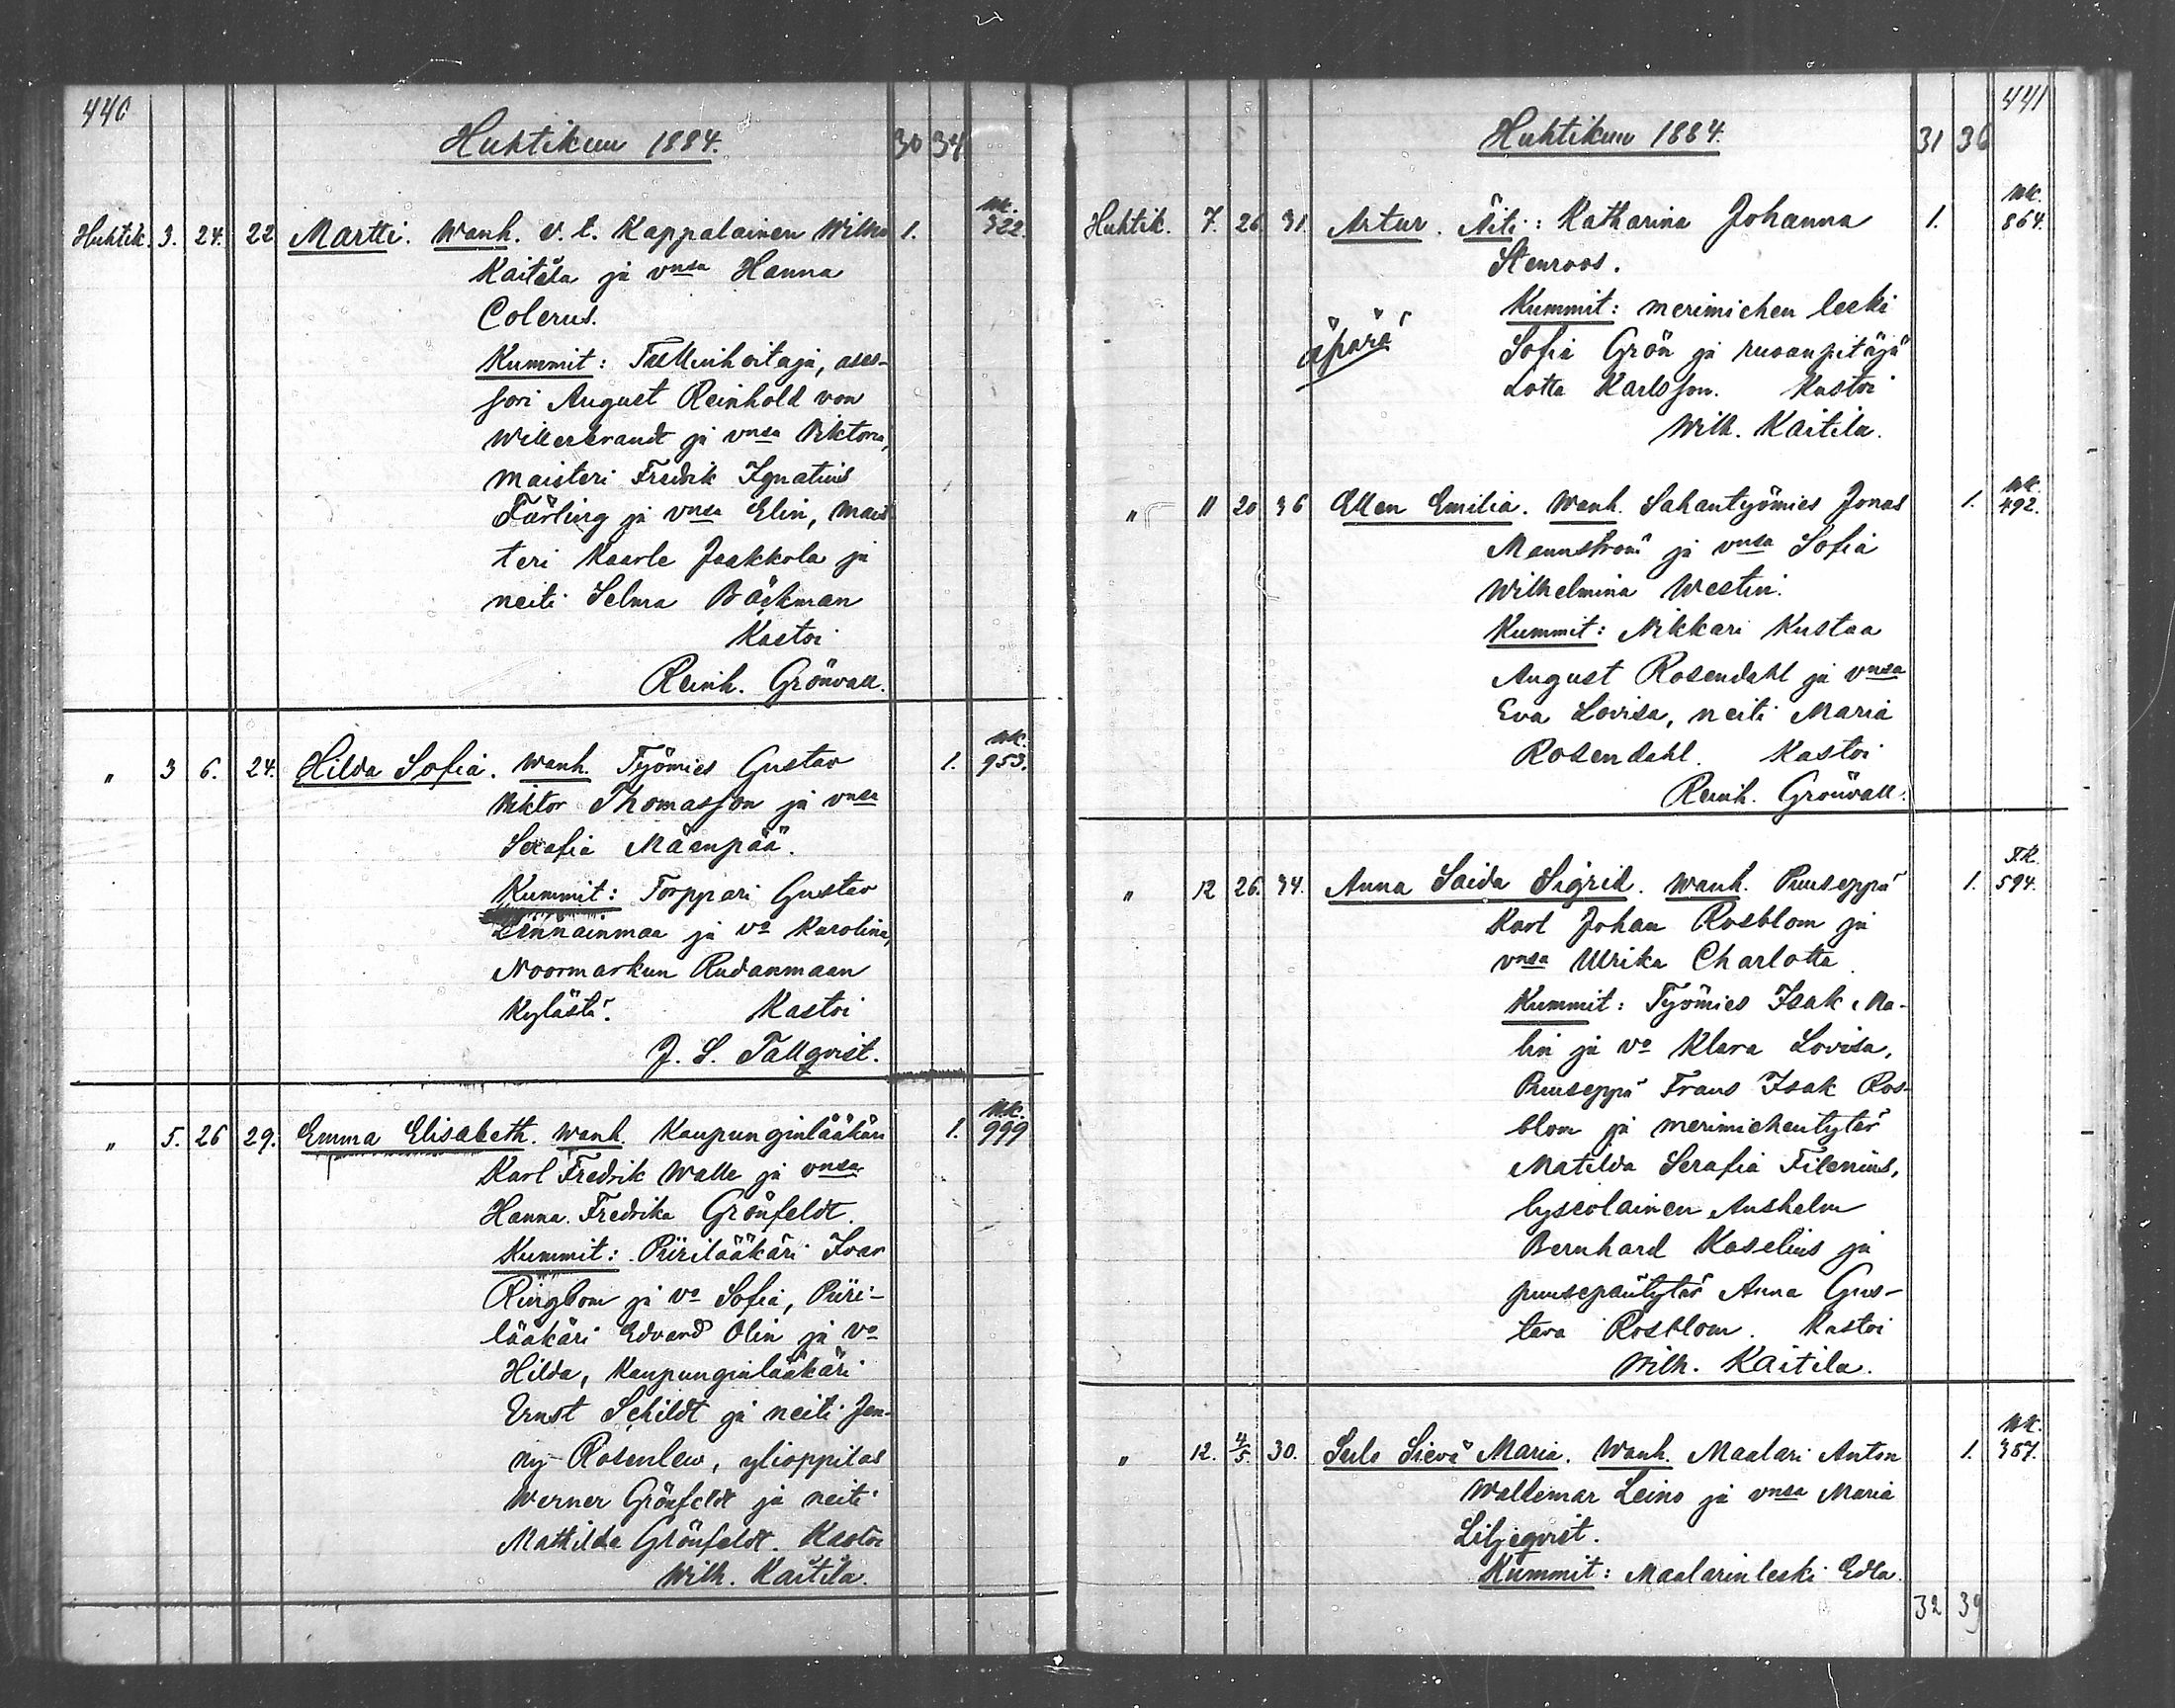 440
Huhtikuu 1884. 30 34
Huhtik. 3. 24. 22 Martti. Wanh. v. t. Kappalainen Wilho 1. WK. 322.
Kaitila ja vnsa Hanna
Colerus.
Kummit: Tullinhoitaja, ases-
sori August Reinhold von
Willebrandt ja vnsa Viktoria,
maisteri Fredrik Ignatius
Färling ja vnsa Elin, mais-
teri Kaarle Jaakkola ja
neiti Selma Bäckman
Kastoi
Reinh. Grönvall.
" 3 6. 24. Hilda Sofia. Wanh. Työmies Gustav 1. WK. 953.
Viktor Thomasson ja vnsa
Serafia Mäenpää.
Kummit: Torppari Gustav
Linnainmaa ja vo Karolina,
Noormarkun Rudanmaan
Kylästä. Kastoi
J. S. Tallqvist.
" 5. 26 29. Emma Elisabeth. Wanh. Kaupunginlääkäri 1. WK. 999
Karl Fredrik Walle ja vnsa
Hanna Fredrika Grönfeldt.
Kummit: Piirilääkäri Ivar
Ringbom ja vo Sofia, Piiri-
lääkäri Edvard Olin ja vo
Hilda, Kaupunginlääkäri
Ernst Schildt ja neiti Jen-
ny Rosenlew, ylioppilas
Werner Grönfeldt ja neiti
Mathilda Grönfeldt. Kastoi
Wilh. Kaitila.
441
Huhtikuu 1884. 31 36
Huhtik. 7. 26 31. Artur. Äiti: Katharina Johanna 1. WK. 864.
Stenroos.
Kummit: merimiehen leski
äpärä Sofia Grön ja ruoanpitäjä
Lotta Karlsson. Kastoi
Wilh. Kaitila.
" 11 20 36 Ellen Emilia. Wanh. Sahantyömies Jonas 1. WK. 492.
Mannström ja vnsa Sofia
Wilhelmina Westin.
Kummit: Nikkari Kustaa
August Rosendahl ja vnsa
Eva Lovisa, neiti Maria
Rosendahl. Kastoi
Reinh. Grönvall.
" 12 26. 34. Anna Saida Sigrid. Wanh. Puuseppä 1. T.K. 594.
Karl Johan Rosblom ja
vnsa Ulrika Charlotta.
Kummit: Työmies Isak Ma-
lin ja vo Klara Lovisa,
Puuseppä Frans Isak Ros-
blom ja merimiehentytär
Matilda Serafia Filenius,
lyseolainen Anshelm
Bernhard Koselius ja
puusepäntytär Anna Gus-
tava Rosblom. Kastoi
Wilh. Kaitila.
" 12. 4/5. 30. Sulo Sievä Maria. Wanh. Maalari Anton 1. WK. 387.
Waldemar Leino ja vnsa Maria
Liljeqvist.
Kummit: Maalarinleski Edla
32 39